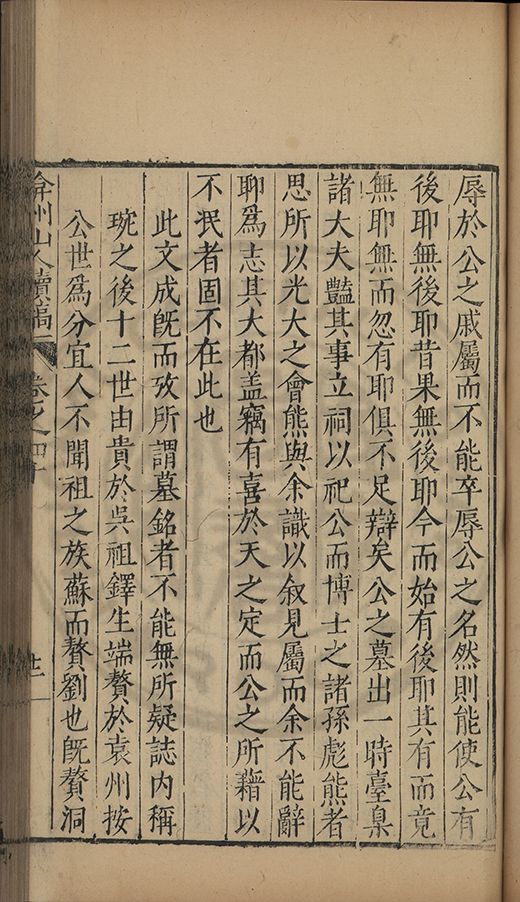 辱於公之戚屬而不能卒辱公之名然則能使公有
後耶無後耶昔果無後耶今而始有後耶其有而竟
無耶無而忽有耶俱不足辯矣公之墓出一時臺臬
諸大夫豔其事立祠以祀公而博士之諸孫彪熊者
思所以光大之會熊與余識以叙見屬而余不能辭
聊爲志其大都盖竊有喜於天之定而公之所藉以
不泯者固不在此也
此文成旣而攷所謂墓銘者不能無所疑誌内稱
琬之後十二世由貴於吳祖鐸生端贅於袁州按
公世爲分宜人不聞祖之族蘇而贅劉也旣贅洞
弇州山人續稿 卷之四十 十一